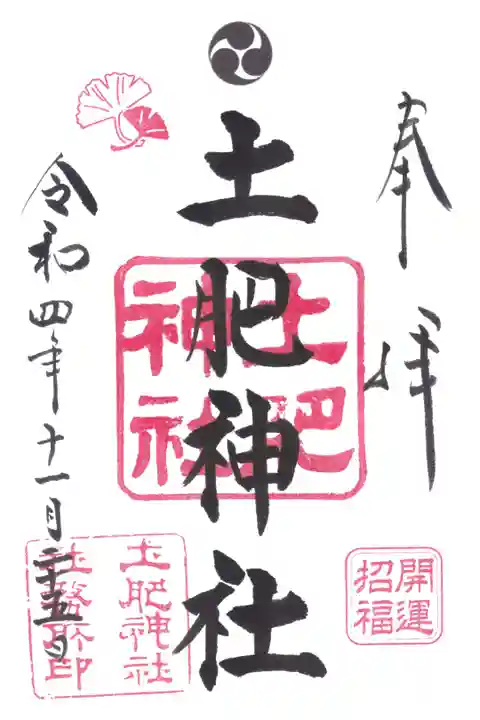 奉拝
土肥神社
土肥
神社
開運
招福
令和四年十一月二十五日
土肥神社
社務所印